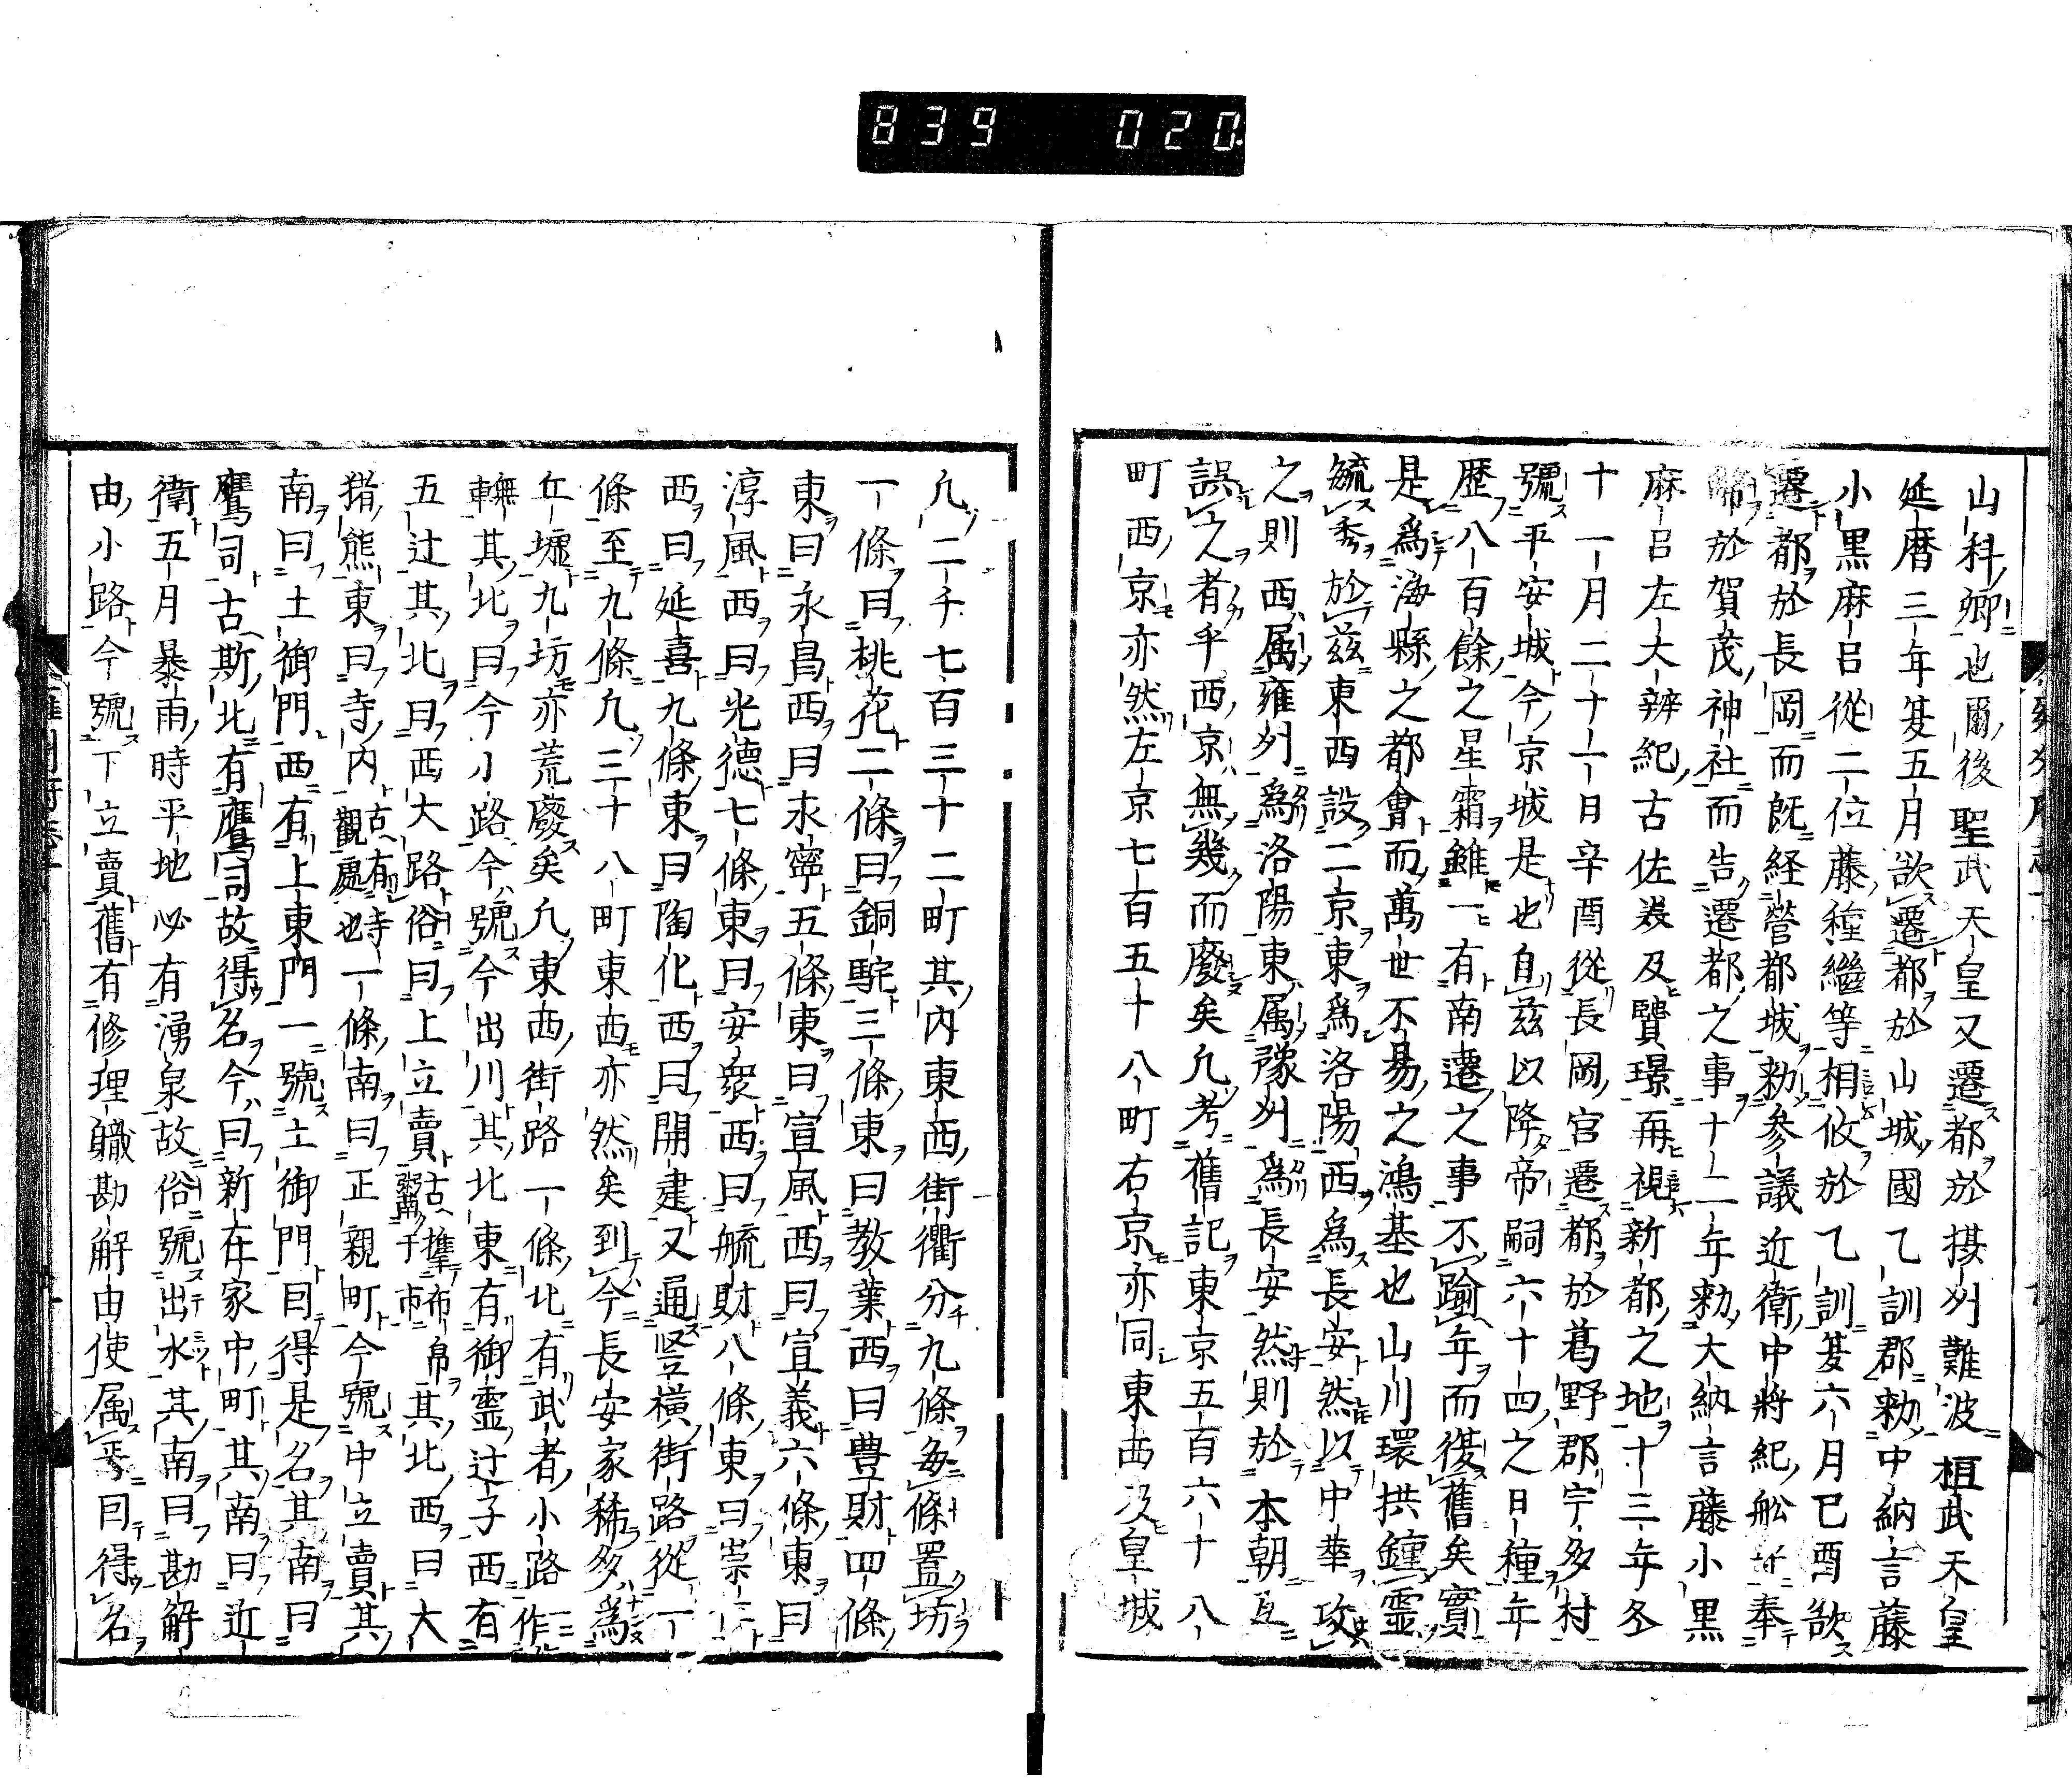 839 020
山科郷也爾後聖武天皇又遷都於摂州難波桓武天皇
延暦三年夏五月欲遷都於山城國乙訓郡勅中納言藤
小黒麻呂從二位藤種繼等相攸於乙訓夏六月已酉欲
遷都於長岡而既経營都城勅参議近衛中將紀舩守奉
幣於賀茂神社而告遷都之事十二年勅大納言藤小黒
麻呂左大辨紀古佐羙及賢璟再視新都之地十三年冬
十一月二十一日辛酉從長岡宮遷都於葛野郡宇多村
號平安城今京城是也自茲以降帝嗣六十四之日種年
歴八百餘之星霜雖一有南遷之事不踰年而復舊矣實
是爲海縣之都會而萬世不易之鴻基也山川環拱鐘靈
毓秀於茲東西設二京東爲洛陽西爲長安然以中華攻
之則西属雍州爲洛陽東属豫州爲長安然則於本朝互
誤之者乎西京無幾而廢矣凢考舊記東京五百六十八
町西京亦然左京七百五十八町右京亦同東西及皇城
凢二千七百三十二町其内東西街衢分九條毎條置坊
一條曰桃花二條曰銅駝三條東曰教業西曰豊財四條
東曰永昌西曰永寧五條東曰宣風西曰宣義六條東曰
淳風西曰光德七條東曰安衆西曰毓財八條東曰崇仁
西曰延喜九條東曰陶化西曰開建又通竪横街路從一
條至九條凢三十八町東西亦然矣到今長安家稀多爲
丘墟九坊亦荒廢矣凢東西街路一條北有武者小路作
轆其北曰今小路今號今出川其北東有御霊辻子西有
五辻其北曰西大路俗曰上立賣古携布帛粥于南市其北西曰大
猪熊東曰寺内古有寺觀處也一條南曰正親町今號中立賣其
南曰土御門西有上東門一號土御門因得是名其南曰
鷹司古斯北有鷹司故得名今曰新在家中町其南曰近
衛五月暴雨時平地必有湧泉故俗號出水其南曰勘解
由小路今號下立賣舊有修理職勘解由使属焉因得名